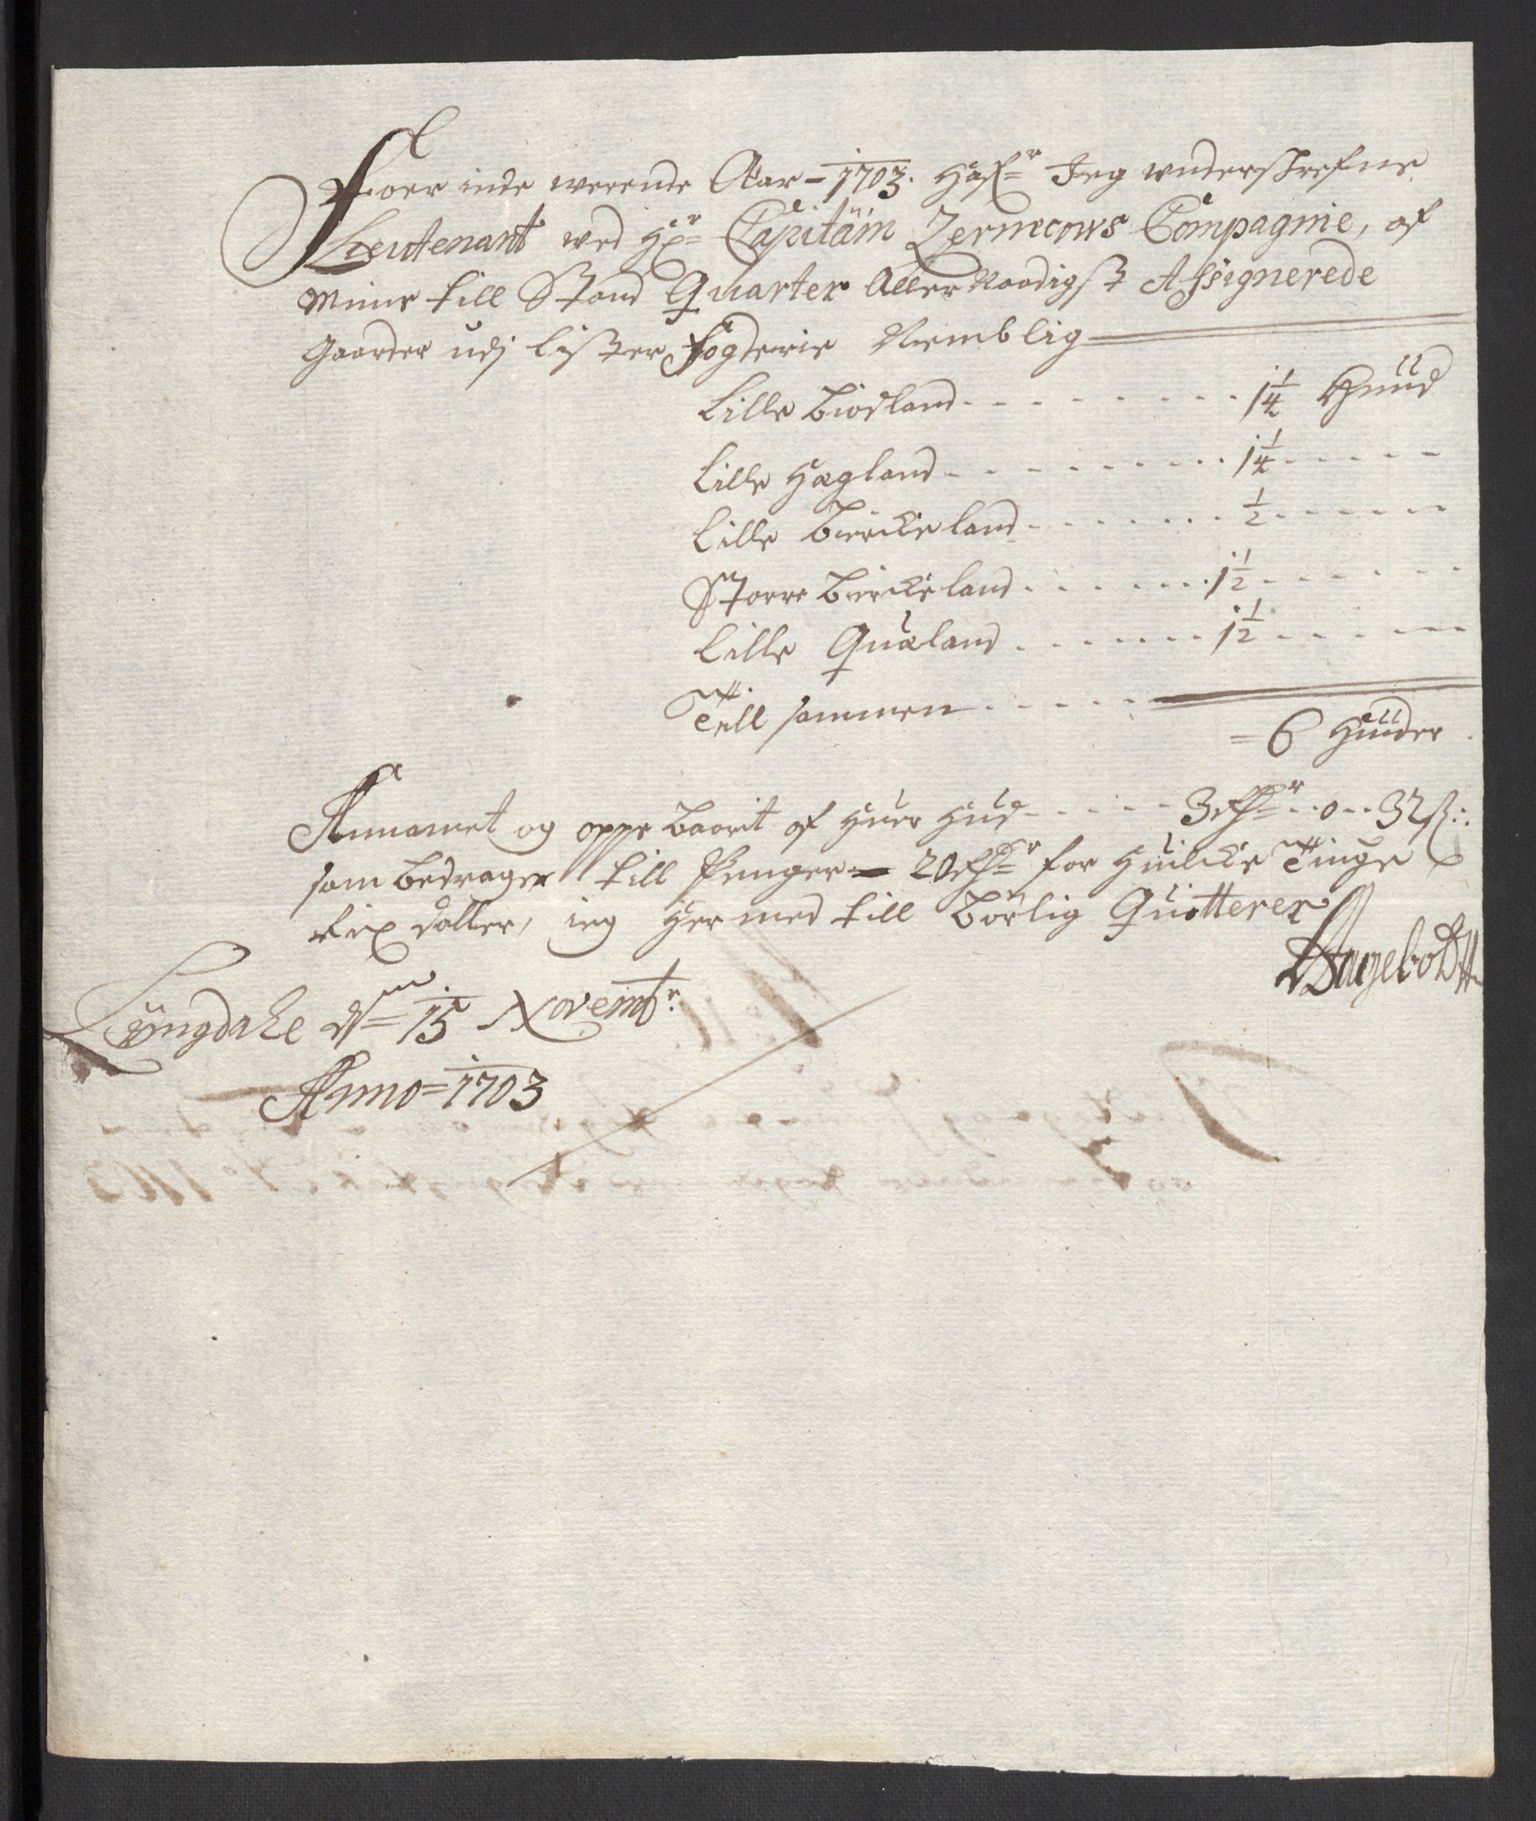 Foer inde werende Aar - 1703. Hafr Jeg underskrefne
Lieutenant wed Hr Capitäin Zernicows Compagnie, af
Minne till Stand Quarter Aller Naadigst Assignerede
Gaarder udj Lister Fogderie Nemblig
Lille Biodland 1 1/4 Huud
Lille Hægland 1 1/4
Lille Bierckeland 1/2
Storre Bierckeland 1 1/2
Lille Quæland 1 1/2
Till sammen
= 6 Huuder
Annamet og oppe baarit af Huer Hud 3 Rdr .. 0 .. 32 s:
som bedrager till Penger 20 Rdr for Huilcke Tiuge
Rix daller, ieg Her med till börlig Quitterer
Lÿngdahle dn 15 Novembr:
Anno = 1703